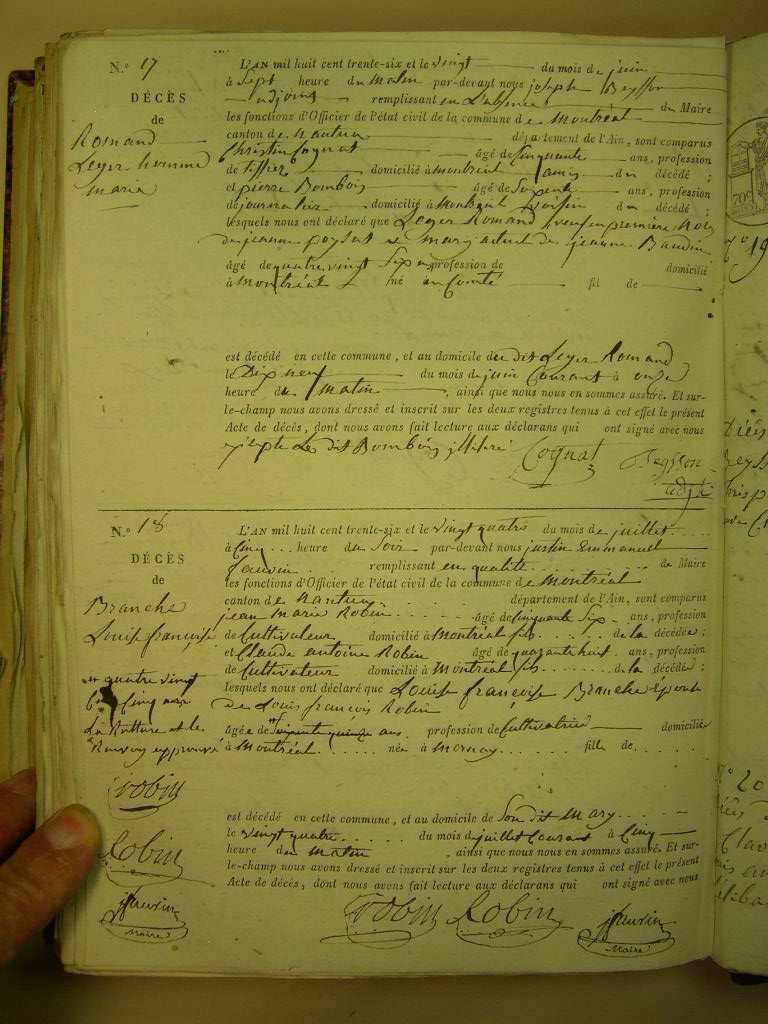 N.° 17
DÉCÈS
de
Romand
Leger homme
marié
L'AN mil huit cent trente-six et le vingt du mois de juin
à Sept heure du Matin par-devant nous joseph Beysson
adjoint remplissant en L'absence du Maire
les fonctions d'Officier de l'état civil de la commune de Montréal
canton de Nantua département de l'Ain, sont comparus
Christin Cognat âgé de Cinquante ans, profession
de domicilié à Montréal amis du décédé ;
et pierre Bombois âgé de Soixante ans, profession
de journalier domicilié à Montréal voisin du décédé ;
lesquels nous ont déclaré que Leger Romand veuf en première
de jeanne et mary actuel de jeanne Baudin
âgé de quatre vingt Sept ans profession de domicilié
à Montréal né en Comté fil de
est décédé en cette commune, et au domicile du dit Leger Romand
le Dix neuf du mois de juin Courant à onze
heure du Matin, ainsi que nous nous en sommes assuré. Et sur-
le-champ nous avons dressé et inscrit sur les deux registres tenus à cet effet le présent
Acte de décès, dont nous avons fait lecture aux déclarans qui ont signé avec nous
Le dit Bombois illitéré
Cognat Beysson
adjt
N.° 18
DÉCÈS
de
Branche
Louise françoise
L'AN mil huit cent trente-six et le vingt quatre du mois de juillet
à Cinq heure du Soir par-devant nous justin Emmanuel
Jauvin remplissant en qualité de Maire
les fonctions d'Officier de l'état civil de la commune de Montréal
canton de Nantua département de l'Ain, sont comparus
jean Marie Robin âgé de Cinquante Six ans, profession
de Cultivateur domicilié à Montréal fils de la décédée ;
et Claude antoine Robin âgé de quarante huit ans, profession
de Cultivateur domicilié à Montréal fils de la décédée ;
lesquels nous ont déclaré que Louise françoise Branche Epouse
De Louis françois Robin
Âgée de Soixante quinze ans profession de Cultivatrice domicilié
à Montréal née à Mornay fille de
quatre vingt
Cinq ans
La Rature et le
Renvoy approuvé
Robin
Robin
Jauvin
Maire
est décédé en cette commune, et au domicile de Son dit Mary
le vingt quatre du mois de juillet Courant à Cinq
heure du Matin, ainsi que nous nous en sommes assuré. Et sur-
le-champ nous avons dressé et inscrit sur les deux registres tenus à cet effet le présent
Acte de décès, dont nous avons fait lecture aux déclarans qui ont signé avec nous
Robin Robin Jauvin
Maire